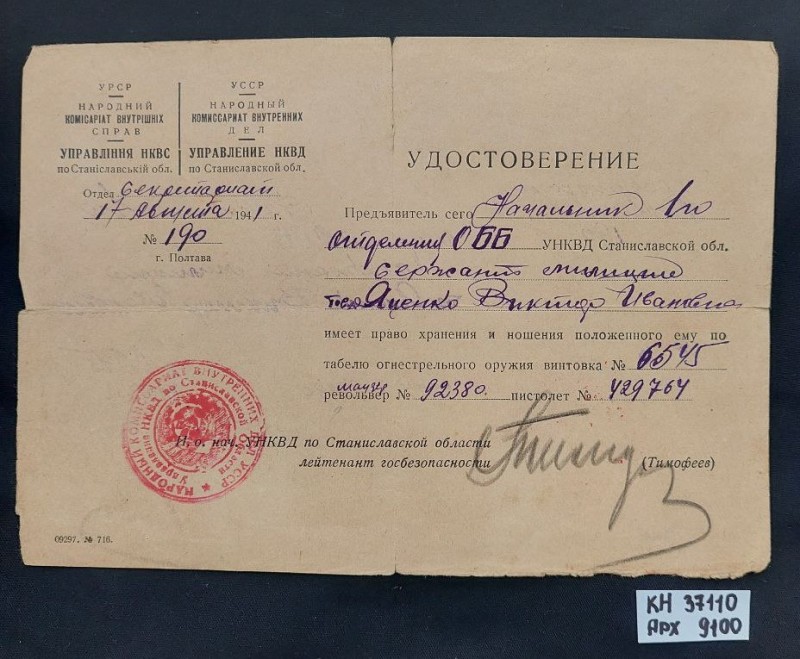 УРСР
НАРОДНИЙ
КОМІСАРІАТ ВНУТРІШНІХ
СПРАВ
УПРАВЛІННЯ НКВС
по Станіславській обл.
УССР
НАРОДНЫЙ
КОМИССАРИАТ ВНУТРЕННИХ
ДЕЛ
УПРАВЛЕНИЕ НКВД
по Станиславской обл.
Отдел Секретариат
17 Августа 1941 г.
№ 190
г. Полтава
УДОСТОВЕРЕНИЕ
Предъявитель сего Начальник 1го
отделения ОББ УНКВД Станиславской обл.
сержант милиции
Яценко Виктор Иванович
имеет право хранения и ношения положенного ему по
табелю огнестрельного оружия винтовка № 6545
револьвер № 92380. пистолет № 429764
И. о. нач. УНКВД по Станиславской области
лейтенант госбезопасности (Тимофеев)
НАРОДНЫЙ КОМИССАРИАТ ВНУТРЕННИХ ДЕЛ УССР
Управление НКВД по Станиславской области
09297. № 716.
КН 37110
АРХ 9100